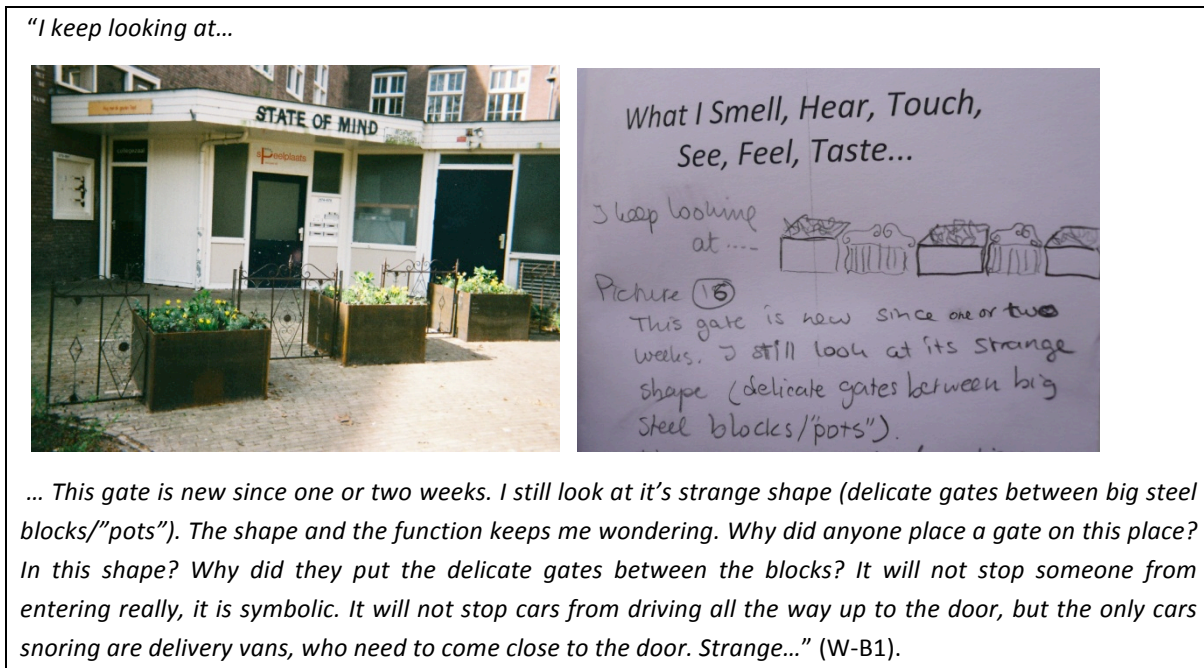 “I keep looking at…
STATE OF MIND
speelplaats
What I Smell, Hear, Touch,
See, Feel, Taste...
I keep looking
at ....
Picture 15
This gate is new since one or two
weeks. I still look at its strange
shape (delicate gates between big
steel blocks/"pots").
… This gate is new since one or two weeks. I still look at it’s strange shape (delicate gates between big steel
blocks/”pots”). The shape and the function keeps me wondering. Why did anyone place a gate on this place?
In this shape? Why did they put the delicate gates between the blocks? It will not stop someone from
entering really, it is symbolic. It will not stop cars from driving all the way up to the door, but the only cars
snoring are delivery vans, who need to come close to the door. Strange…” (W-B1).